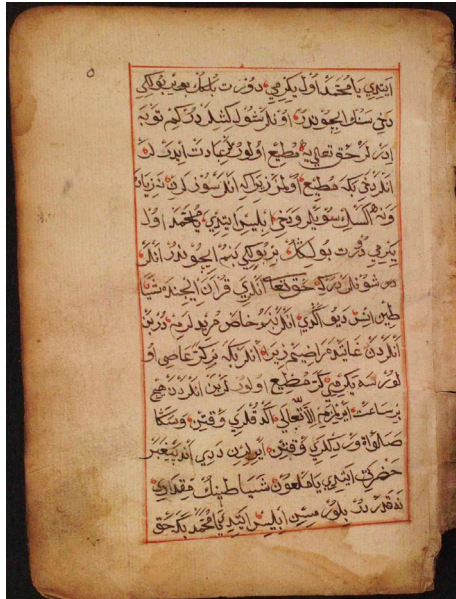 ايتدي يا محمد اول يكرمي دورت بلنك بهر بولكي
دخي سنك ايچوندر اونلر شول كشلردركم توبه
ايدرلر حق تعالي يه مطيع اولورلر عبادت ايدرلر
انلر دخي بكه مطيع اولمزلر زيرا كه انلر سوزلرن زيان
سويلر دخي ابليس ايتدي يا محمد اول
يكرمي دورت بولكنك بر بولكي بنم ايچوندر انلر
شونلردر كه حق تعا انلري قران ايچنده شيا
طين انس ديو اكدي انلر بنم خاص مريدلرمدر بن
انلردن غايتده راضيم زيرا انلر بكه هركز عاصي او
لورسه يكرمي كز مطيع اولورلر بن انلردن هيچ
بر ساعت ايرلمزم الا تعالي اكدقلري وقتن وسكا
صلواة ويردكلري وقتن ايرلورن ددي اندن پيغمبر
حضرت ايتدي يا ملعون شياطينك مقداري
نه قدردر بلورمسن ابليس ايتدي يا محمد بكه حق